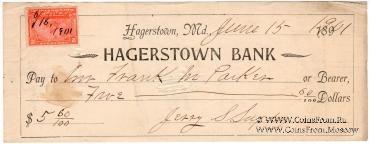 6/15, 1901
Hagerstown, Md. June 15 1901 189
HAGERSTOWN BANK
Pay to Frank M Parker or Bearer,
Five 60/100 Dollars
$ 5 60/100 Jerry S.
www.CoinsFrom.ru
CoinsFrom.Moscow